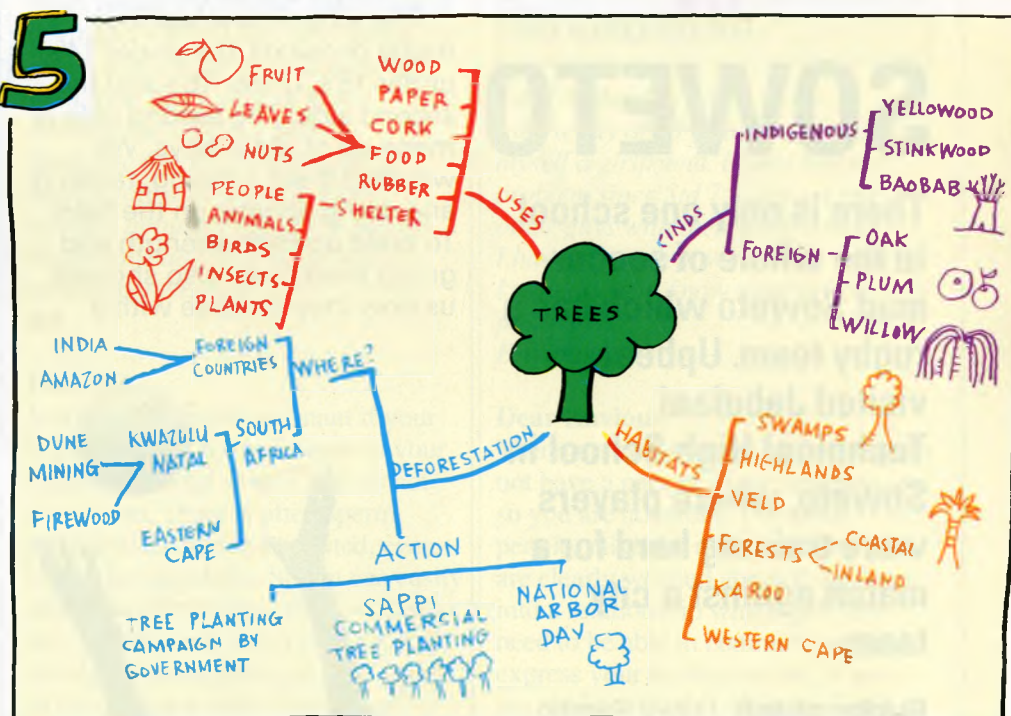 5
TREES
USES
WOOD
PAPER
CORK
FOOD
RUBBER
SHELTER
FRUIT
LEAVES
NUTS
PEOPLE
ANIMALS
BIRDS
INSECTS
PLANTS
KINDS
INDIGENOUS
YELLOWOOD
STINKWOOD
BAOBAB
FOREIGN
OAK
PLUM
WILLOW
HABITATS
SWAMPS
HIGHLANDS
VELD
FORESTS
COASTAL
INLAND
KAROO
WESTERN CAPE
DEFORESTATION
WHERE?
FOREIGN
COUNTRIES
INDIA
AMAZON
SOUTH
AFRICA
KWAZULU
NATAL
DUNE
MINING
FIREWOOD
EASTERN
CAPE
ACTION
TREE PLANTING
CAMPAIGN BY
GOVERNMENT
SAPPI
COMMERCIAL
TREE PLANTING
NATIONAL
ARBOR
DAY